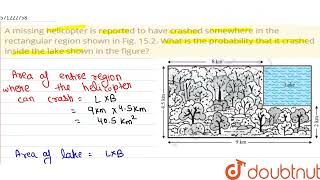 571222738
A missing helicopter is reported to have crashed somewhere in the
rectangular region shown in Fig. 15.2. What is the probability that it crashed
inside the lake shown in the figure?
Area of entire region
where the helicopter
can crash = L×B
= 9km × 4.5km
= 40.5 km²
Area of lake = L×B
6 km
Lake
4.5 km
2 km
9 km
doubtnut